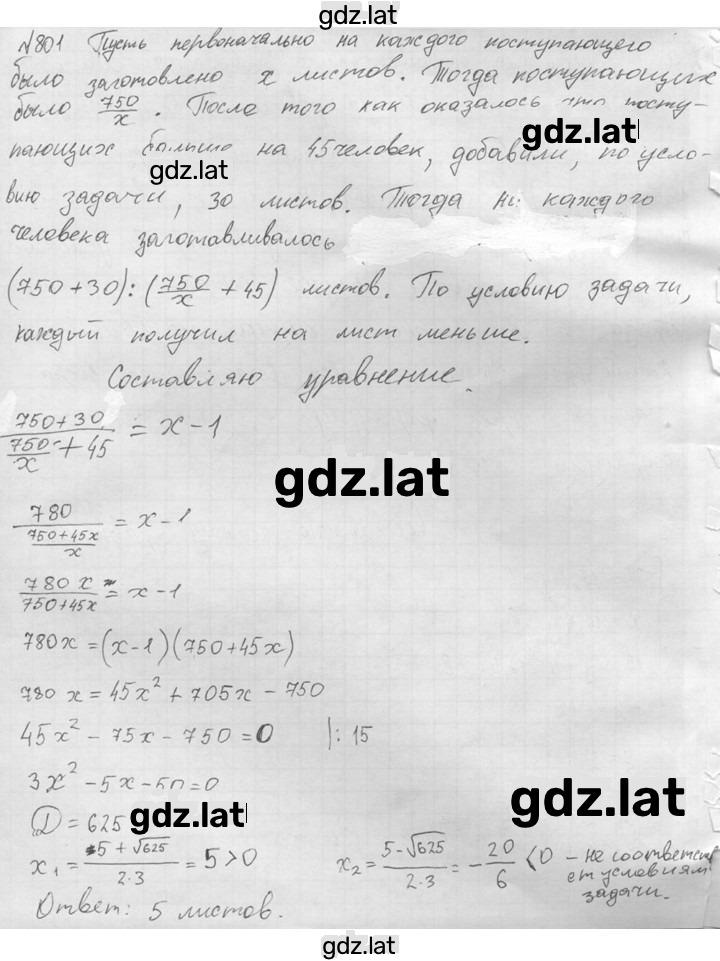 gdz.lat
№801 Пусть первоначально на каждого поступающего
было заготовлено x листов. Тогда поступающих
было 750/x. После того как оказалось что посту-
gdz.lat
пающих больше на 45 человек, добавили, по усло-
gdz.lat
вию задачи, 30 листов. Тогда на каждого
человека заготавливалось
(750+30):(750/x + 45) листов. По условию задачи,
каждый получил на лист меньше.
Составляю уравнение.
(750+30)/(750/x + 45) = x-1
gdz.lat
780/((750+45x)/x) = x-1
780x/(750+45x) = x-1
780x = (x-1)(750+45x)
780x = 45x² + 705x - 750
45x² - 75x - 750 = 0 |: 15
3x² - 5x - 50 = 0
gdz.lat
D = 625
gdz.lat
x₁ = (5+√625)/(2·3) = 5 > 0 x₂ = (5-√625)/(2·3) = -20/6 < 0 - не соответст
ет условиям
задачи.
Ответ: 5 листов.
gdz.lat